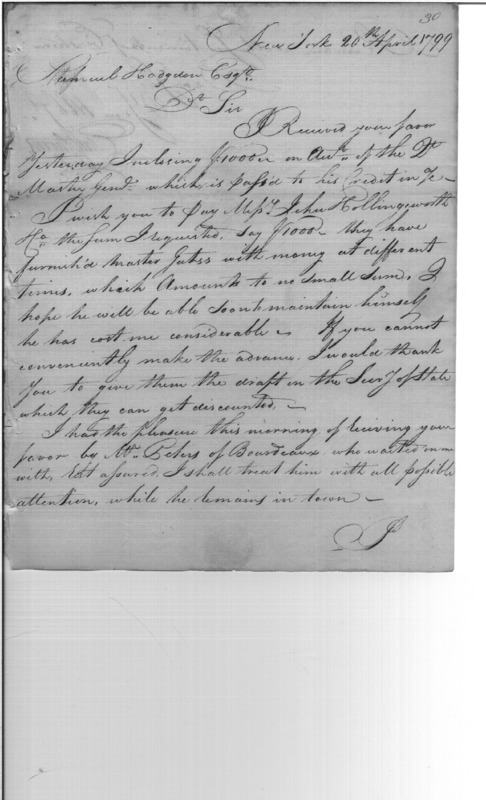 30
New York 20th April 1799
Samuel Hodgdon Esqr.
Dr. Sir
I Received your favor
Yesterday Inclosing $1000 on Acct. of the Qr.
Master Genl. which is pass'd to his Credit in
I wish you to pay Messrs. John Hollingsworth
& Co the sum I requested, say $1000 - they have
furnish'd Master Gates with money at different
times, which Amounts to no small sum, I
hope he will be able soon to maintain himself
he has cost me considerable - If you cannot
conveniently make the advance. I would thank
You to give them the draft on the Secy of State
which they can get discounted, -
I had the pleasure this morning of receiving your
favor by Mr. Peters of Bourdeaux who waited on me
with, rest assured I shall treat him with all possible
attention, while he remains in town -